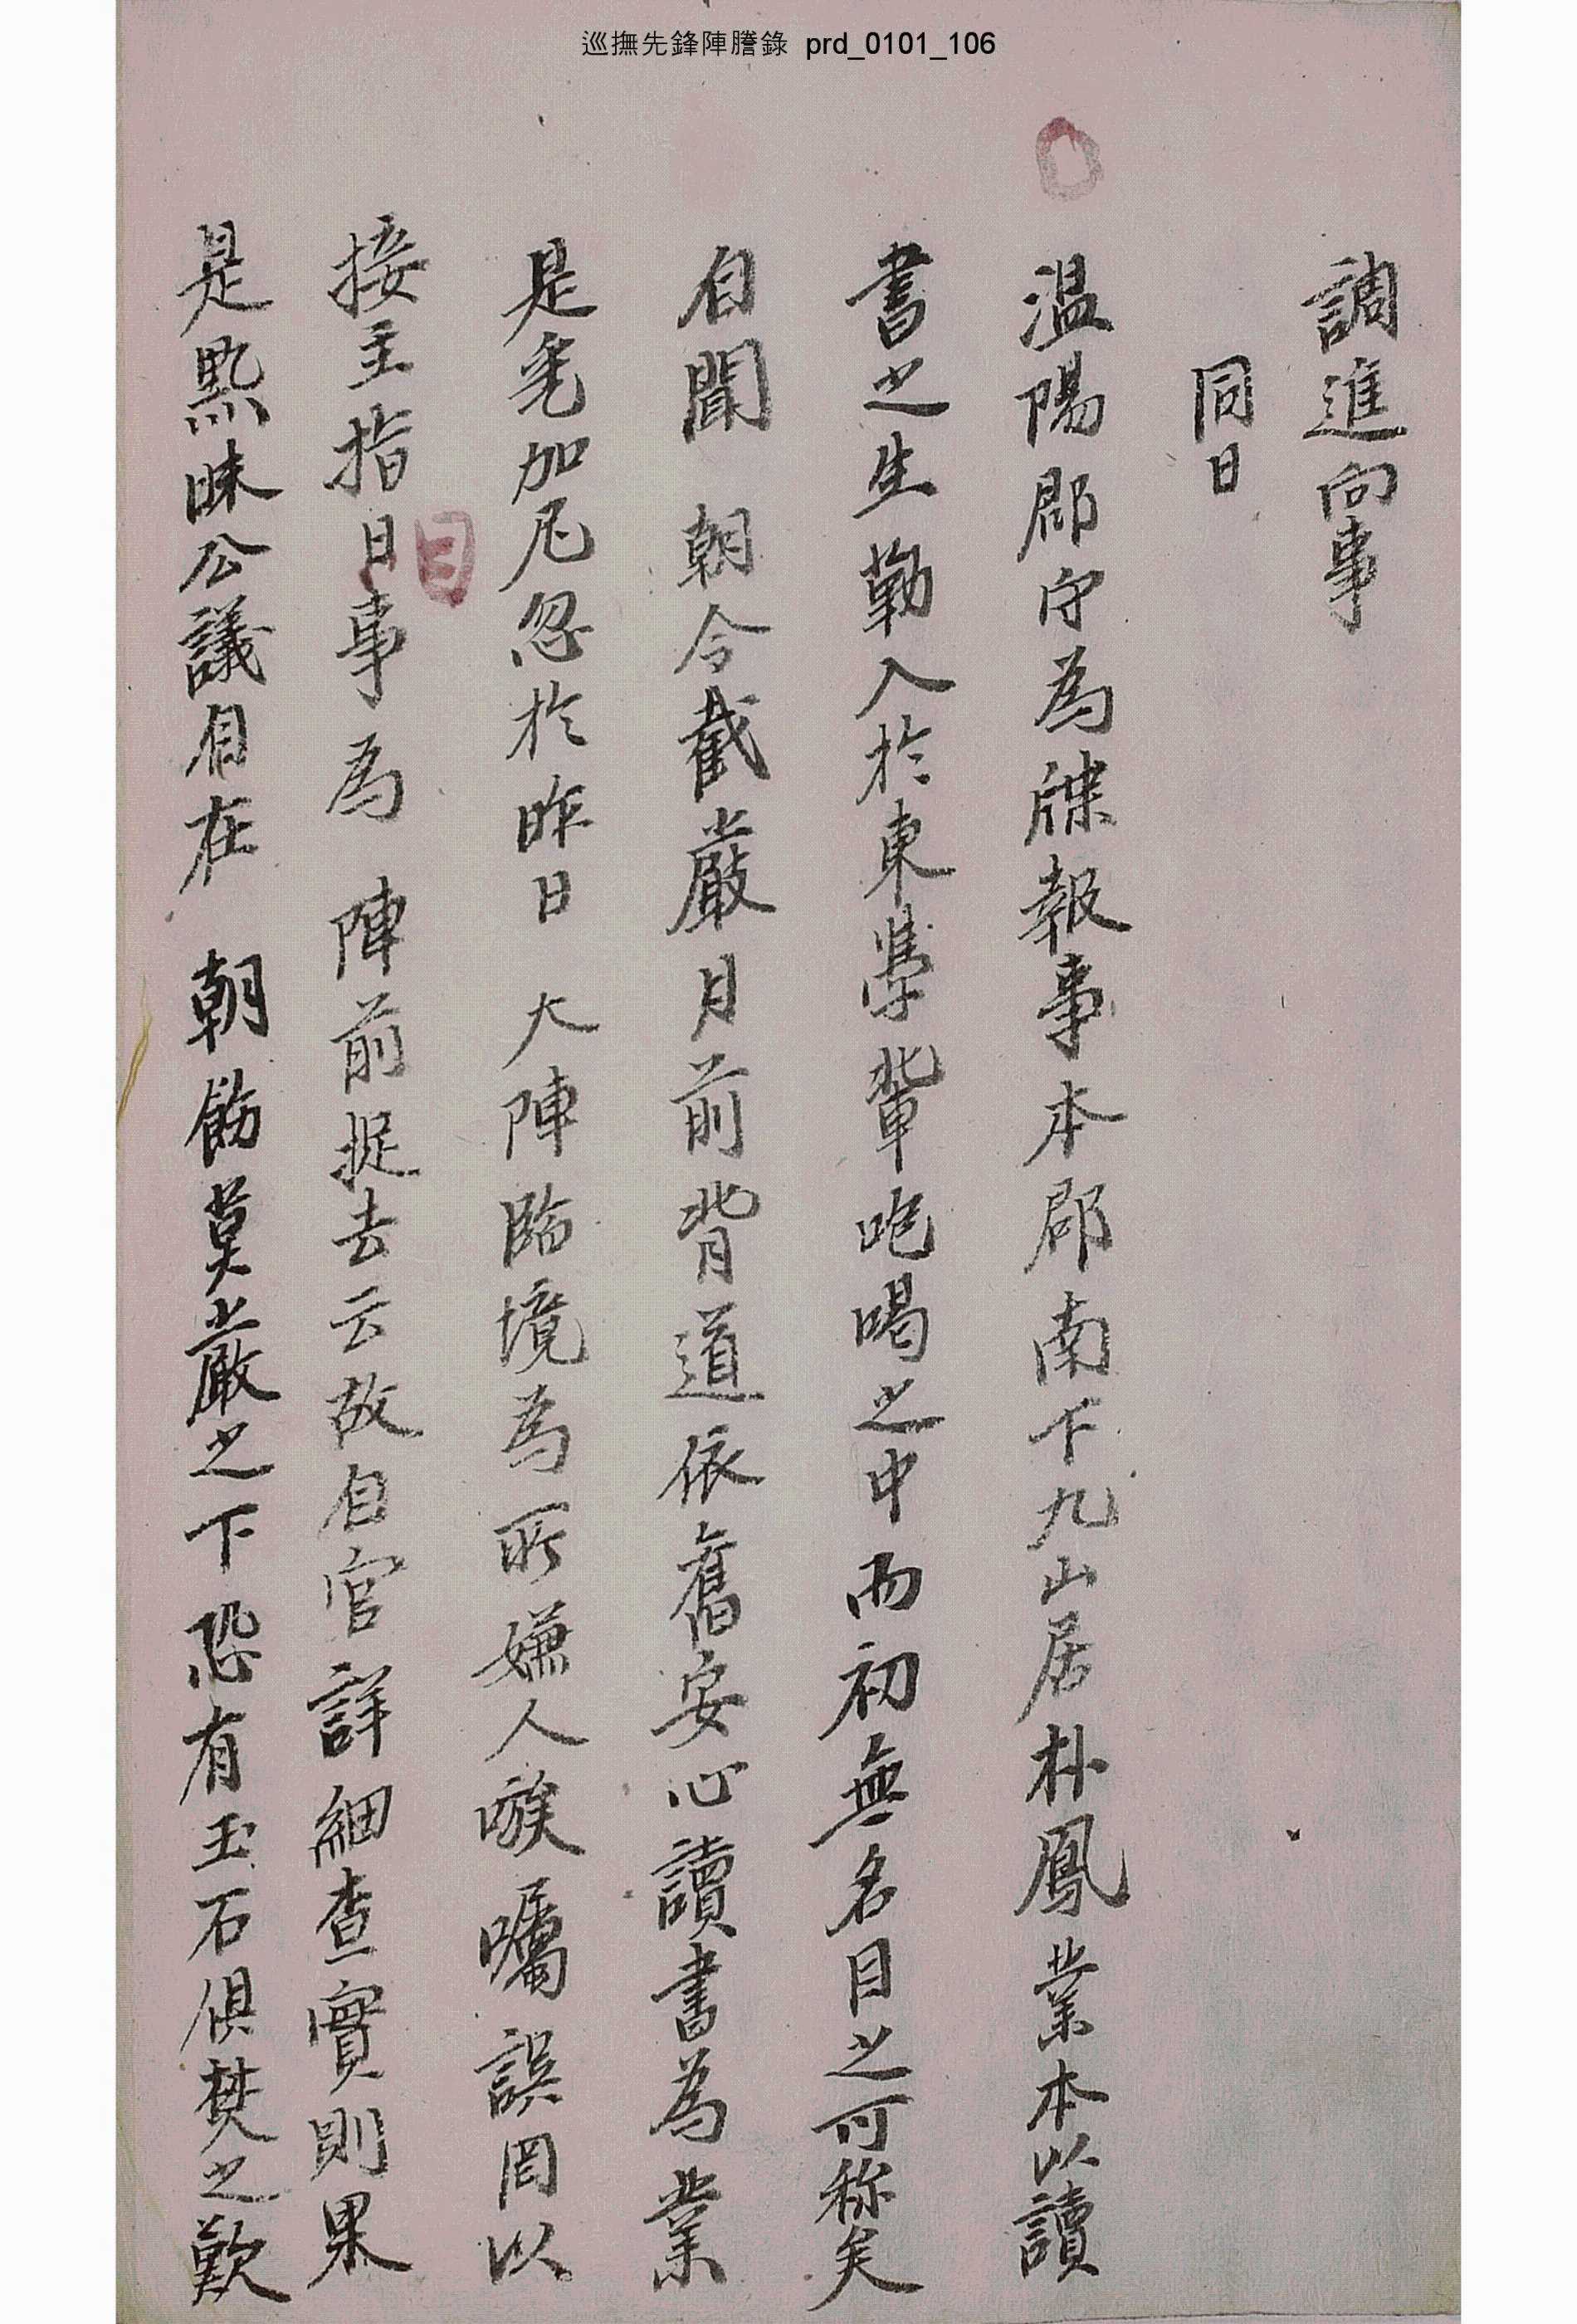 巡撫先鋒陣謄錄 prd_0101_106
調進向事
同日
温陽郡守為牒報事本郡南下九山居朴鳳業本以讀
書之生勒入於東學輩咆喝之中而初無名目之可称矣
自聞 朝令截嚴月前背道依舊安心讀書為業
是乎加尼忽於昨日 大陣臨境為所嫌人嗾囑誤罔以
接主指目事為 陣前捉去云故自官詳細查實則果
是黙昧公議自在 朝飭莫嚴之下恐有玉石俱焚之歎